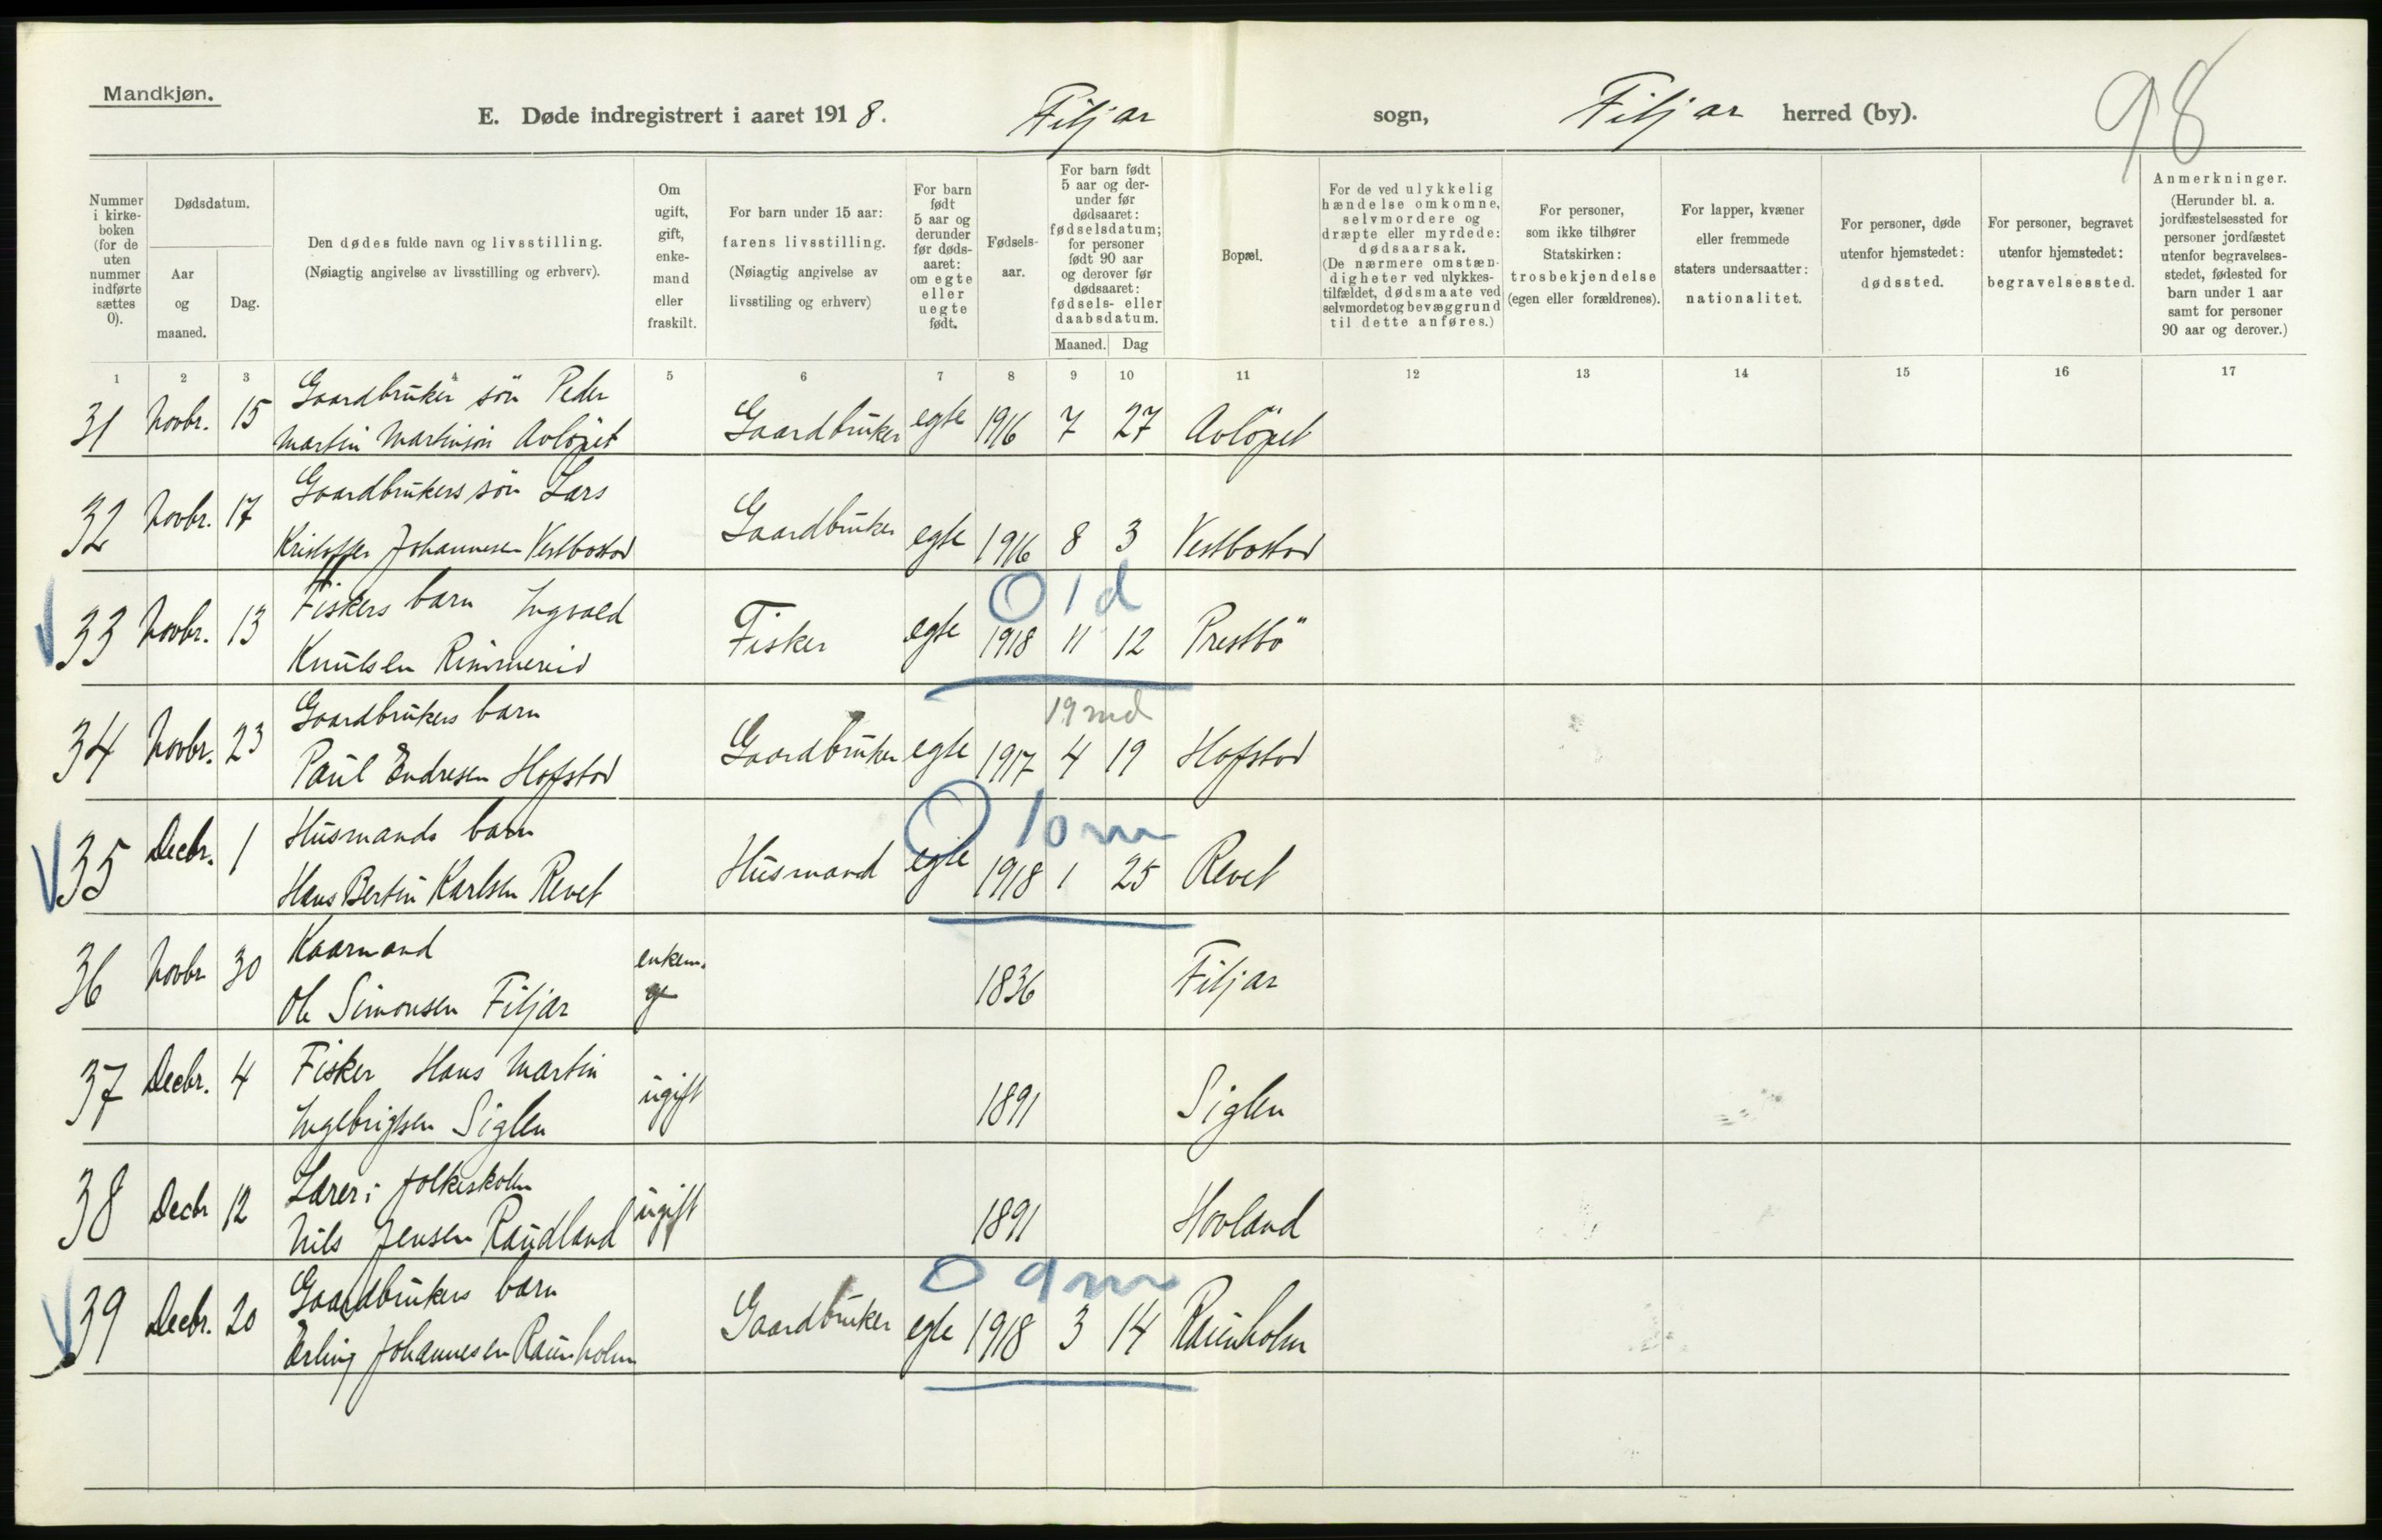 Mandkjøn.
98
E. Døde indregistrert i aaret 1918. Fitjar sogn, Fitjar herred (by).
Nummer i kirke-boken (for de uten nummer indførte sættes 0).
Dødsdatum.
Aar og maaned.
Dag.
Den dødes fulde navn og livsstilling.
(Nøiagtig angivelse av livsstilling og erhverv).
Om ugift, gift, enke-mand eller fraskilt.
For barn under 15 aar: farens livsstilling.
(Nøiagtig angivelse av livsstiling og erhverv)
For barn født 5 aar og derunder før døds-aaret: om egte eller uegte født.
Fødsels-aar.
For barn født 5 aar og der-under før dødsaaret: fødselsdatum; for personer født 90 aar og derover før dødsaaret: fødsels- eller daabsdatum.
Maaned. Dag
Bopæl.
For de ved ulykkelig hændelse omkomne, selvmordere og dræpte eller myrdede: dødsaarsak.
(De nærmere omstæn-digheter ved ulykkes-tilfældet, dødsmaate ved selvmordet og bevæggrund til dette anføres.)
For personer, som ikke tilhører Statskirken: trosbekjendelse (egen eller forældrenes).
For lapper, kvæner eller fremmede staters undersaatter: nationalitet.
For personer, døde utenfor hjemstedet: dødssted.
For personer, begravet utenfor hjemstedet: begravelsessted.
Anmerkninger.
(Herunder bl. a. jordfæstelsessted for personer jordfæstet utenfor begravelses-stedet, fødested for barn under 1 aar samt for personer 90 aar og derover.)
1 2 3 4 5 6 7 8 9 10 11 12 13 14 15 16 17
Gaardbruker sön Peder
31 Novbr. 15 Martin Martinsön Avlöpet Gaardbruker egte 1916 7 27 Avlöpet
Gaardbrukers sön Lars
32 Novbr. 17 Kristoffer Johannesen Vestbostad Gaardbruker egte 1916 8 3 Vestbostad
0 1 d
Fiskers barn Ingvald
33 Novbr. 13 Knutsen Rimmereid Fisker egte 1918 11 12 Prestbö
19 md
Gaardbrukers barn
34 Novbr. 23 Paul Endresen Hofstad Gaardbruker egte 1917 4 19 Hofstad
0 10 m
Husmands barn
35 Decbr. 1 Hans Bertin Karlsen Revet Husmand egte 1918 1 25 Revet
Kaarmand
36 Novbr 30 Ole Simonsen Fitjar enkem. 1836 Fitjar
Fisker Hans Martin
37 Decbr. 4 Ingebrigtsen Siglen ugift 1891 Siglen
Lærer i folkeskolen
38 Decbr 12 Nils Jensen Raudland ugift 1891 Hovland
0 9 m
Gaardbrukers barn
39 Decbr. 20 Erling Johannesen Raunholm Gaardbruker egte 1918 3 14 Raunholm